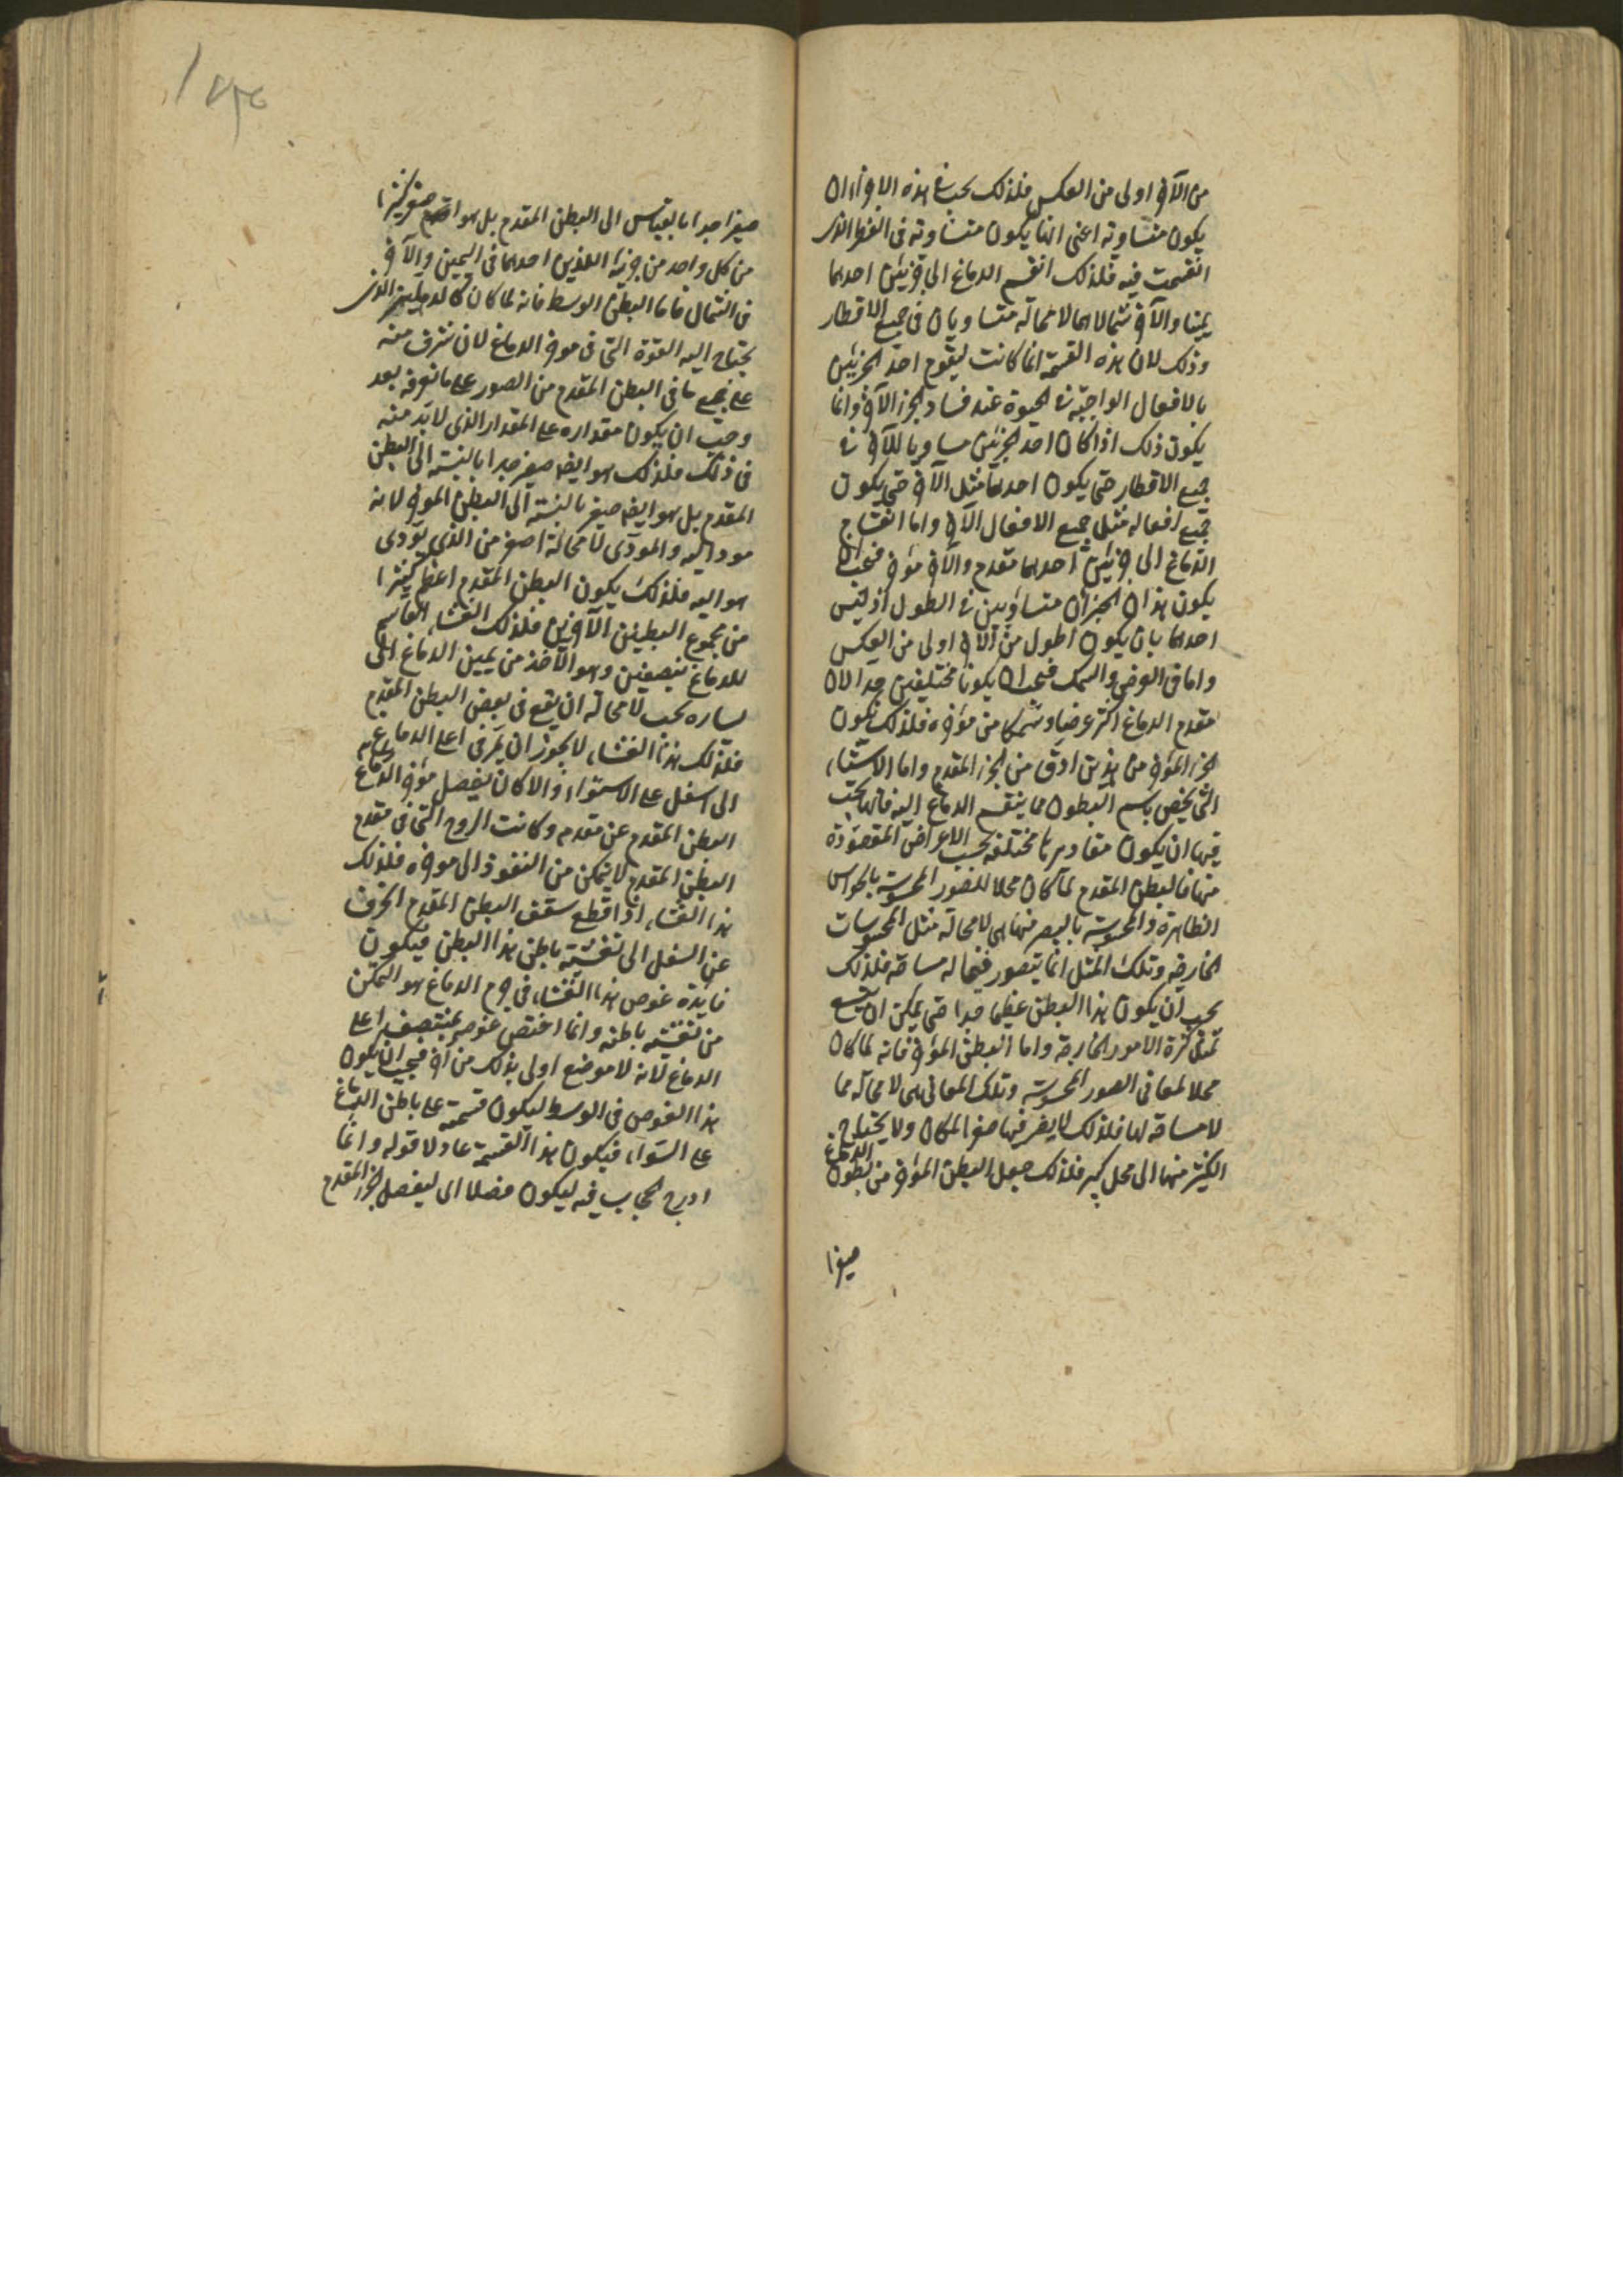 من الآخر اولى من العكس فلذلك يجب في هذه الاجزاء ان
يكون متساوية اعنى انها يكون متساوية فى القطر الذى
انقسمت فيه فلذلك انقسم الدماغ الى جزئين احدهما
يمينا والآخر شمالا هما لا محالة متساويان فى جميع الاقطار
وذلك لان هذه القسمة انما كانت ليقوم احد الجزئين
بالافعال الواجبة فى الحيوة عند فساد الجزء الآخر وانما
يكون ذلك اذا كان احد الجزئين مساويا للآخر فى
جميع الاقطار حتى يكون احدهما مثل الآخر حتى يكون
جميع افعاله مثل جميع الافعال الآخر واما انقسام
الدماغ الى جزئين احدهما مقدم والآخر مؤخر فيجب ان
يكون هذان الجزءان متساويين فى الطول اذ ليس
احدهما بان يكون اطول من الآخر اولى من العكس
واما فى العرض والسمك فيجب ان يكونا مختلفين جدا لان
مقدم الدماغ اكثر عرضا وسمكا من مؤخره فلذلك يكون
الجزء المؤخر من هذين ادق من الجزء المقدم واما الاشياء
التى يخص باسم البطون مما ينقسم الدماغ اليه فانها يجب
فيها ان يكون مقاديرها مختلفة بحسب الاعراض المقصودة
منها فالبطن المقدم لما كان محلا للصور المحسوسة بالحواس
الظاهرة والمحسوسة بالبصر منها هى لا محالة مثل المحسوسات
الخارجة وتلك المثل انما يتصور فيما له مساحة فلذلك
يجب ان يكون هذا البطن عظيما جدا حتى يمكن ان يتسع
تمثل كثرة الامور الخارجة واما البطن المؤخر فانه لما كان
محلا لمعانى الصور المحسوسة وتلك المعانى هى لا محالة مما
لا مساحة لها فلذلك لا يضر فيها صغر المكان ولا يحتاج
الكثير منها الى محل كبير فلذلك جعل البطن المؤخر من بطون الدماغ
صغيرا
صغيرا جدا بالقياس الى البطن المقدم بل هو اصغر كثيرا
من كل واحد من جزئيه اللذين احدهما فى اليمين والآخر
فى الشمال فاما البطن الوسط فانه لما كان كالدهليز الذى
يحتاج اليه القوة التى فى مؤخر الدماغ لان تشرف منه
على جميع ما فى البطن المقدم من الصور على ما نعرفه بعد
وجب ان يكون مقداره على المقدار الذى لا بد منه
فى ذلك فلذلك هو ايضا صغير جدا بالنسبة الى البطن
المقدم بل هو ايضا صغير بالنسبة الى البطن المؤخر لانه
مود اليه والمودى لا محالة اصغر من الذى يودى
هو اليه فلذلك يكون البطن المقدم اعظم كثيرا
من مجموع البطينين الآخرين فلذلك الغشاء القاسم
للدماغ بنصفين وهو الآخذ من يمين الدماغ الى
يساره يجب لا محالة ان يقع فى بعض البطن المقدم
فلذلك هذا الغشاء لا يجوز ان يمر فى اعلى الدماغ
الى اسفل على الاستواء والا كان يفصل مؤخر الدماغ
البطن المقدم عن مقدمه وكانت الروح التى فى مقدم
البطن المقدم لا يتمكن من النفوذ الى مؤخره فلذلك
هذا الغشاء اذا قطع سقف البطن المقدم انحرف
عن السفل الى تغشية باطن هذا البطن فيكون
فايدة غوص هذا الغشاء فى جرم الدماغ هو التمكن
من تغشية باطنه وانما اختص غوصه بمنتصف اعلى
الدماغ لانه لا موضع اولى بذلك من آخر فيجب ان يكون
هذا الغوص فى الوسط ليكون قسمته على باطن الدماغ
على السواء فيكون هذا القسمة عادلا قوله وانما
ادرج الحجاب فيه ليكون فصلا اى ليفصل الجزء المقدم